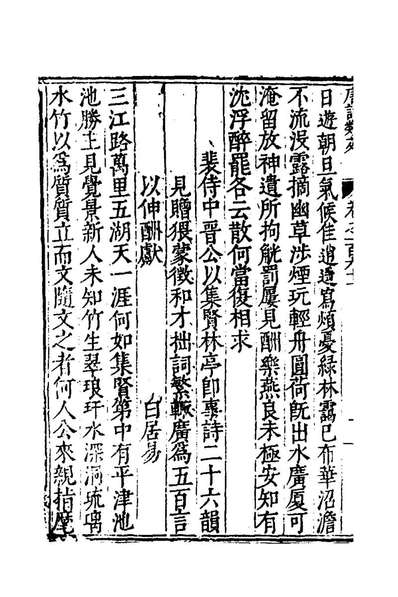 日遊朝旦氣候佳逍遥寫煩憂綠林靄已布華沼澹
不流浸露摘幽草涉煙玩輕舟圓荷既出水廣厦可
淹留放神遺所拘觥罰屢見酬樂燕良未極安知有
沈浮醉罷各云散何當復相求
裴侍中晉公以集賢林亭即事詩二十六韻
見贈猥蒙徵和才拙詞繁輒廣爲五百言
以伸酬獻 白居易
三江路萬里五湖天一涯何如集賢第中有平津池
池勝主見覺景新人未知竹生翠琅玕水深洞琉璃
水竹以爲質質立而文隨文之者何人公來親指麾